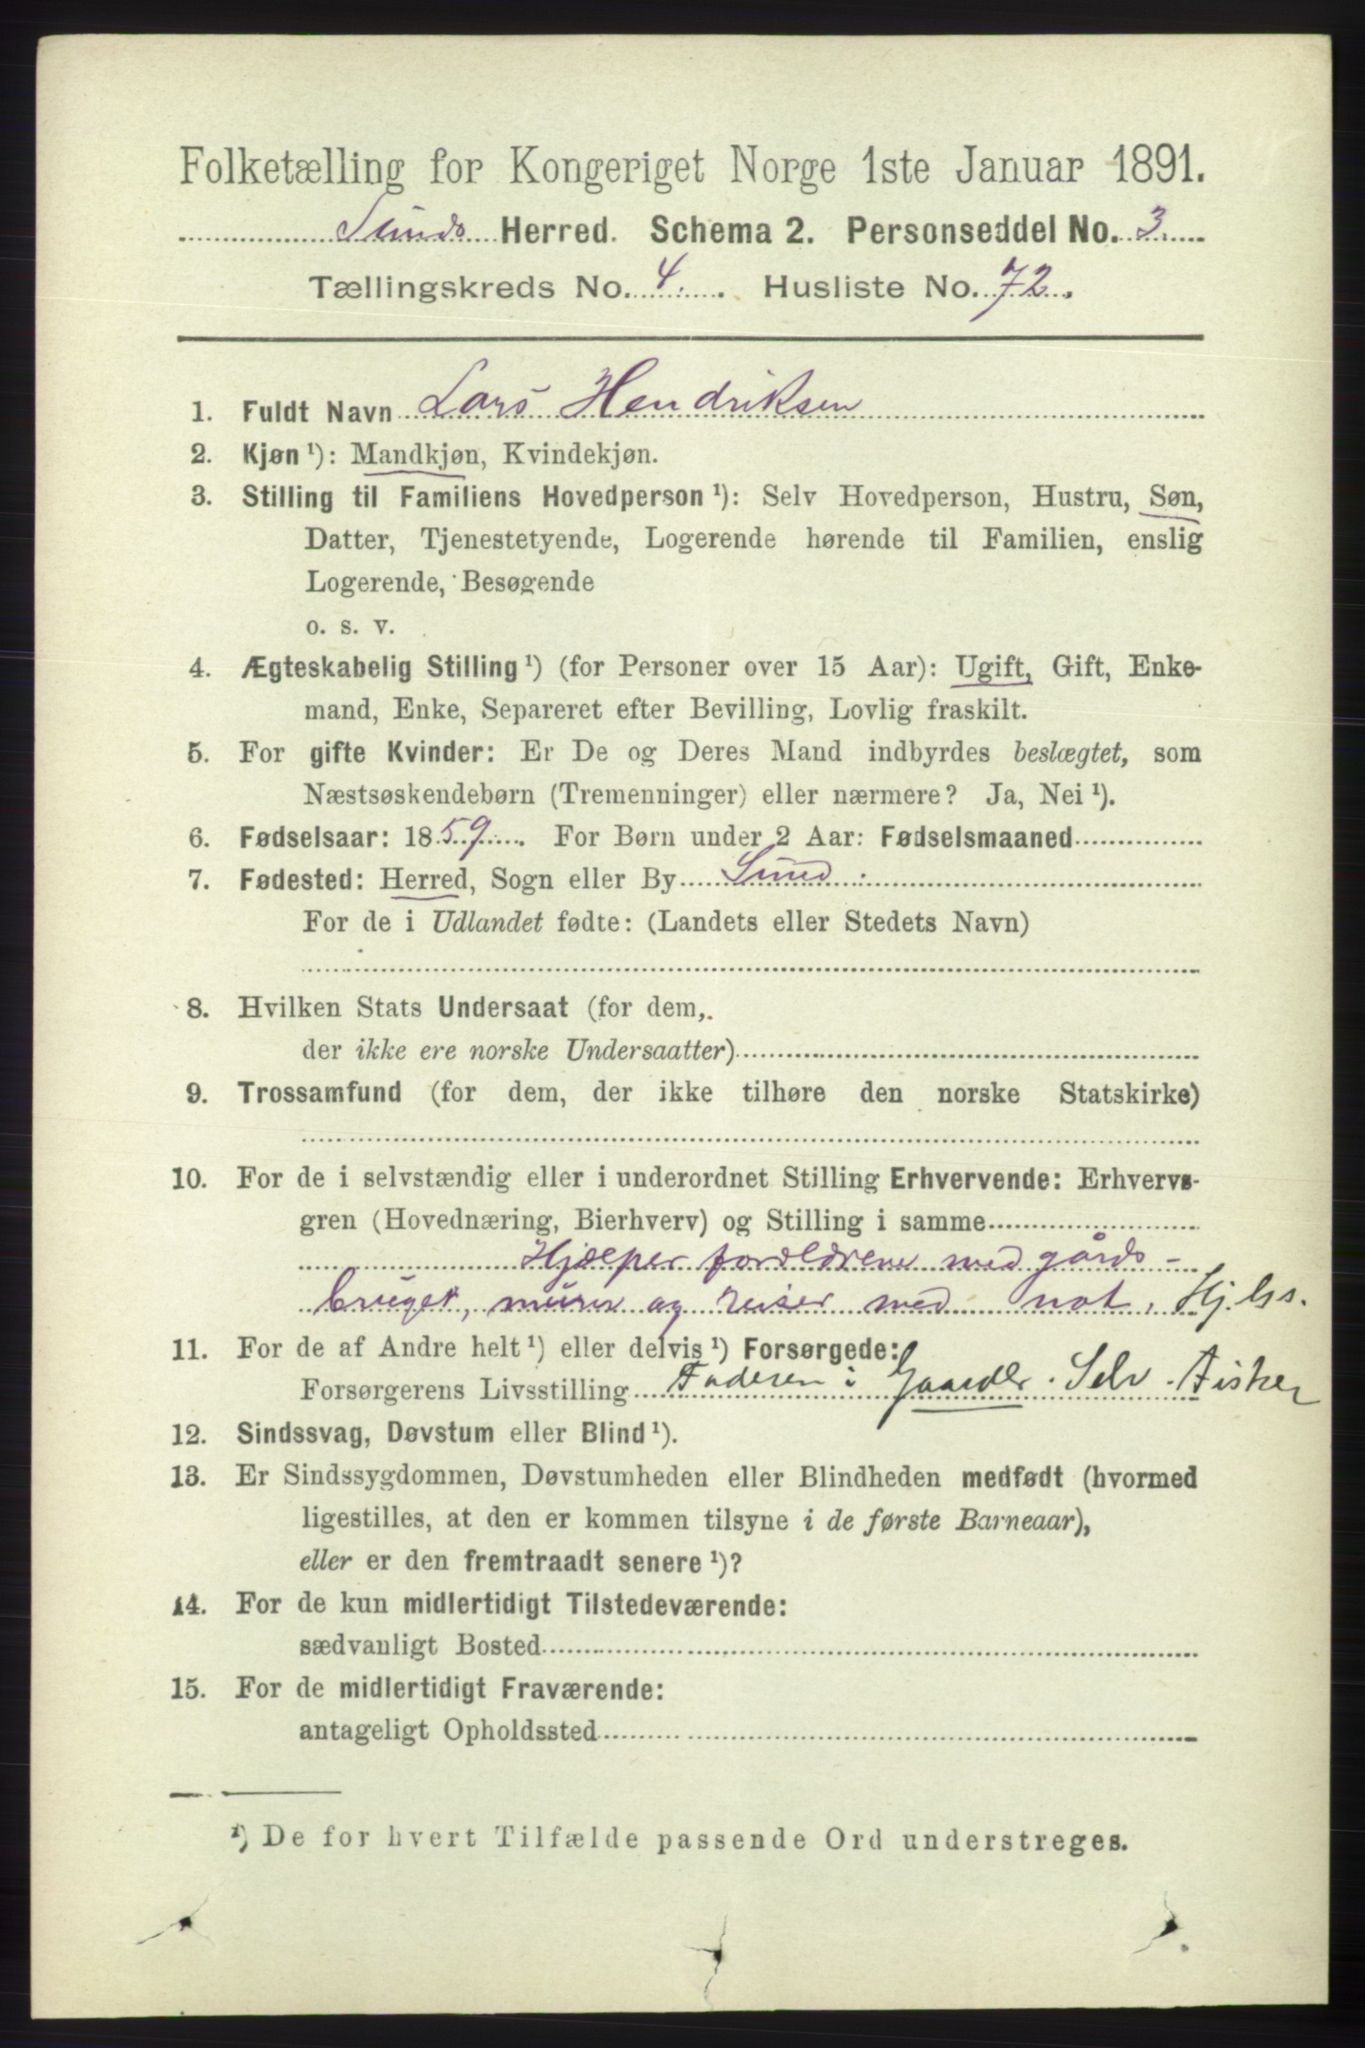 Folketælling for Kongeriget Norge 1ste Januar 1891.
Sunds Herred. Schema 2. Personseddel No. 3.
Tællingskreds No. 4. Husliste No. 72.
1. Fuldt Navn Lars Hendriksen
2. Kjøn ¹): Mandkjøn, Kvindekjøn.
3. Stilling til Familiens Hovedperson ¹): Selv Hovedperson, Hustru, Søn,
Datter, Tjenestetyende, Logerende hørende til Familien, enslig
Logerende, Besøgende
o. s. v.
4. Ægteskabelig Stilling ¹) (for Personer over 15 Aar): Ugift, Gift, Enke-
mand, Enke, Separeret efter Bevilling, Lovlig fraskilt.
5. For gifte Kvinder: Er De og Deres Mand indbyrdes beslægtet, som
Næstsøskendebørn (Tremenninger) eller nærmere? Ja, Nei ¹).
6. Fødselsaar: 1859. For Børn under 2 Aar: Fødselsmaaned
7. Fødested: Herred, Sogn eller By Sund.
For de i Udlandet fødte: (Landets eller Stedets Navn)
8. Hvilken Stats Undersaat (for dem,
der ikke ere norske Undersaatter)
9. Trossamfund (for dem, der ikke tilhøre den norske Statskirke)
10. For de i selvstændig eller i underordnet Stilling Erhvervende: Erhvervs-
gren (Hovednæring, Bierhverv) og Stilling i samme
Hjælper forældrene med gårds-
bruget, murer og reiser med not. Hj.
11. For de af Andre helt ¹) eller delvis ¹) Forsørgede:
Forsørgerens Livsstilling Faderen i Gaardbr. Selv. Fisker
12. Sindssvag, Døvstum eller Blind ¹).
13. Er Sindssygdommen, Døvstumheden eller Blindheden medfødt (hvormed
ligestilles, at den er kommen tilsyne i de første Barneaar),
eller er den fremtraadt senere ¹)?
14. For de kun midlertidigt Tilstedeværende:
sædvanligt Bosted
15. For de midlertidigt Fraværende:
antageligt Opholdssted
¹) De for hvert Tilfælde passende Ord understreges.